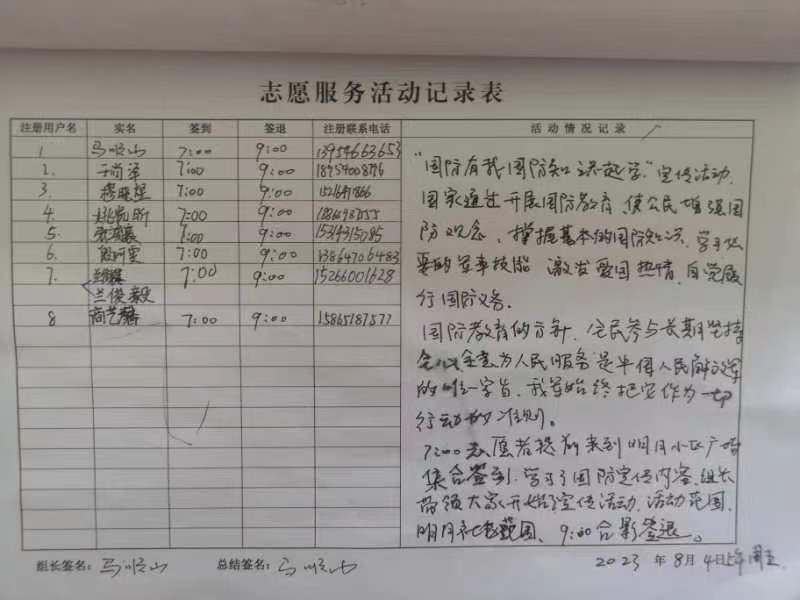 志愿服务活动记录表
注册用户名 实名 签到 签退 注册联系电话 活动情况记录
1 马顺山 7:00 9:00 13954663653
2. 7:00 9:00 18954008976
3. 7:00 9:00
4. 7:00 9:00
5. 7:00 9:00 15314315085
6. 7:00 9:00 13864706483
7. 7:00 9:00 15266001628
兰俊毅
8 商艺馨 7:00 9:00 15865187577
“国防有我·国防知识起学”宣传活动.
国家通过开展国防教育,使公民增强国
防观念,掌握基本的国防知识、学习必
要的军事技能 激发爱国热情,自觉履
行国防义务.
国防教育的方针,全民参与长期坚持
全心全意为人民服务是中国人民解放军
的唯一宗旨,我军始终把它作为一切
行动的准则。
7:00志愿者提前来到明月小区广场
集合签到.学习了国防宣传内容,组长
带领大家开始了宣传活动.活动范围.
明月社区范围、9:00合影签退。
组长签名:马顺山 总结签名:马顺山 2023 年 8 月 4 日上午周五